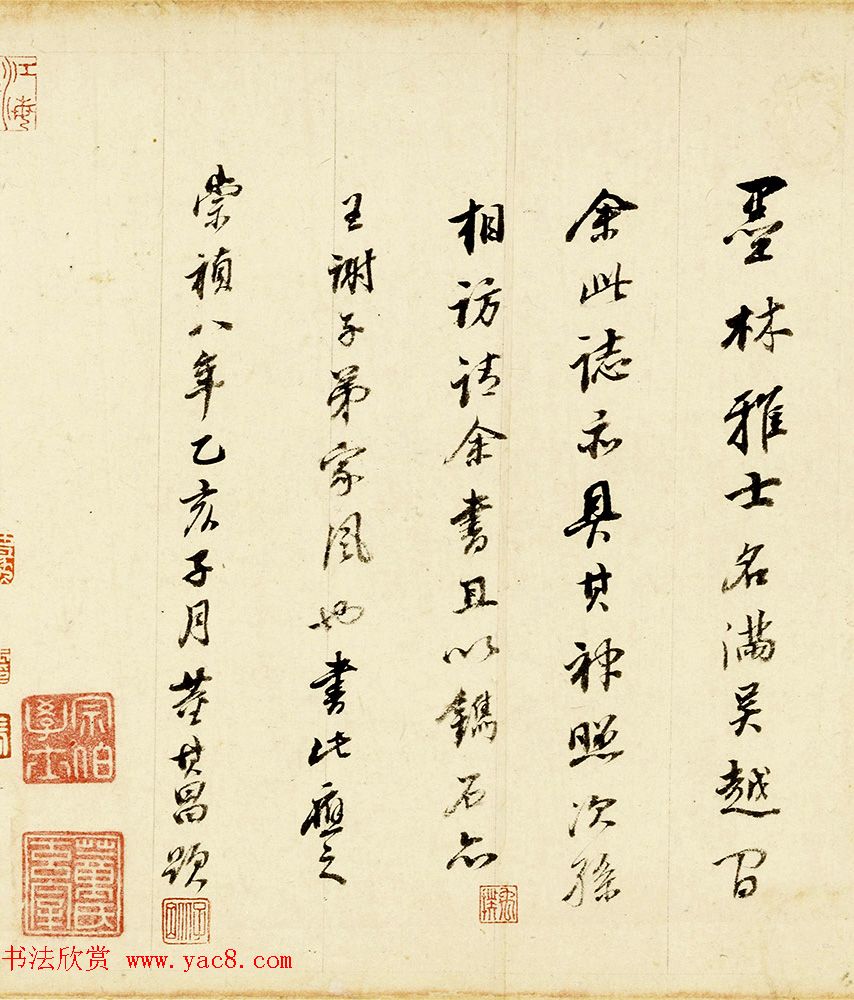 墨林雅士名滿吳越間
余此誌亦具其神照次孫
相訪請余書且以鐫石亦
王謝子弟家風也書此應之
崇禎八年乙亥子月董其昌題
宗伯學士
董氏玄宰
江海
书法欣赏 www.yac8.com